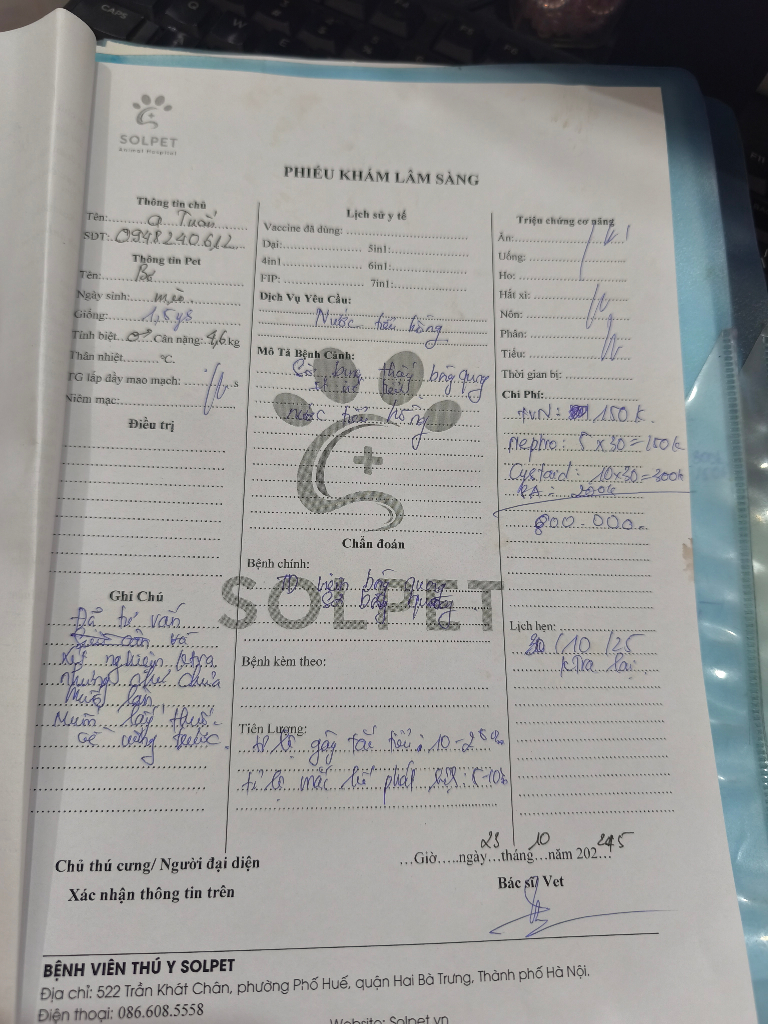 SOLPET
Animal Hospital
PHIẾU KHÁM LÂM SÀNG
Thông tin chủ
Tên: a Tuấn
SĐT: 0948240612
Thông tin Pet
Tên: Bơ
Ngày sinh: mèo
Giống: 1,5ys
Tính biệt ♂ Cân nặng: 4,6 kg
Thân nhiệt ......°C.
TG lấp đầy mao mạch: ......s
Niêm mạc:
Điều trị
Ghi Chú
Đã tư vấn
xét nghiệm, ktra
nhưng chủ chưa
muốn làm
Muốn lấy thuốc
về uống trước
Lịch sử y tế
Vaccine đã dùng:
Dại: 5in1:
4in1 6in1:
FIP: 7in1:
Dịch Vụ Yêu Cầu:
Nước tiểu hồng
Mô Tả Bệnh Cảnh:
Sờ bụng thấy bàng quang
nước tiểu hồng
Chẩn đoán
Bệnh chính:
TD bệnh bàng quang
Sỏi bàng quang
SOLPET
Bệnh kèm theo:
Tiên Lượng:
tỉ lệ gây tắc tiểu: 10-25%
tỉ lệ mắc tái phát lại: 5-10%
Triệu chứng cơ năng
Ăn:
Uống:
Ho:
Hắt xì:
Nôn:
Phân:
Tiểu:
Thời gian bị:
Chi Phí:
150k.
Nephro: 5 x 30 = 150k
Cystaid: 10x30 = 300k
SA: 200k
800.000
Lịch hẹn:
30/10/25
ktra lại
Chủ thú cưng/ Người đại diện
Xác nhận thông tin trên
...Giờ.....ngày 23 tháng 10 năm 2025
Bác sĩ Vet
BỆNH VIÊN THÚ Y SOLPET
Địa chỉ: 522 Trần Khát Chân, phường Phố Huế, quận Hai Bà Trưng, Thành phố Hà Nội.
Điện thoại: 086.608.5558
Website: Solpet.vn